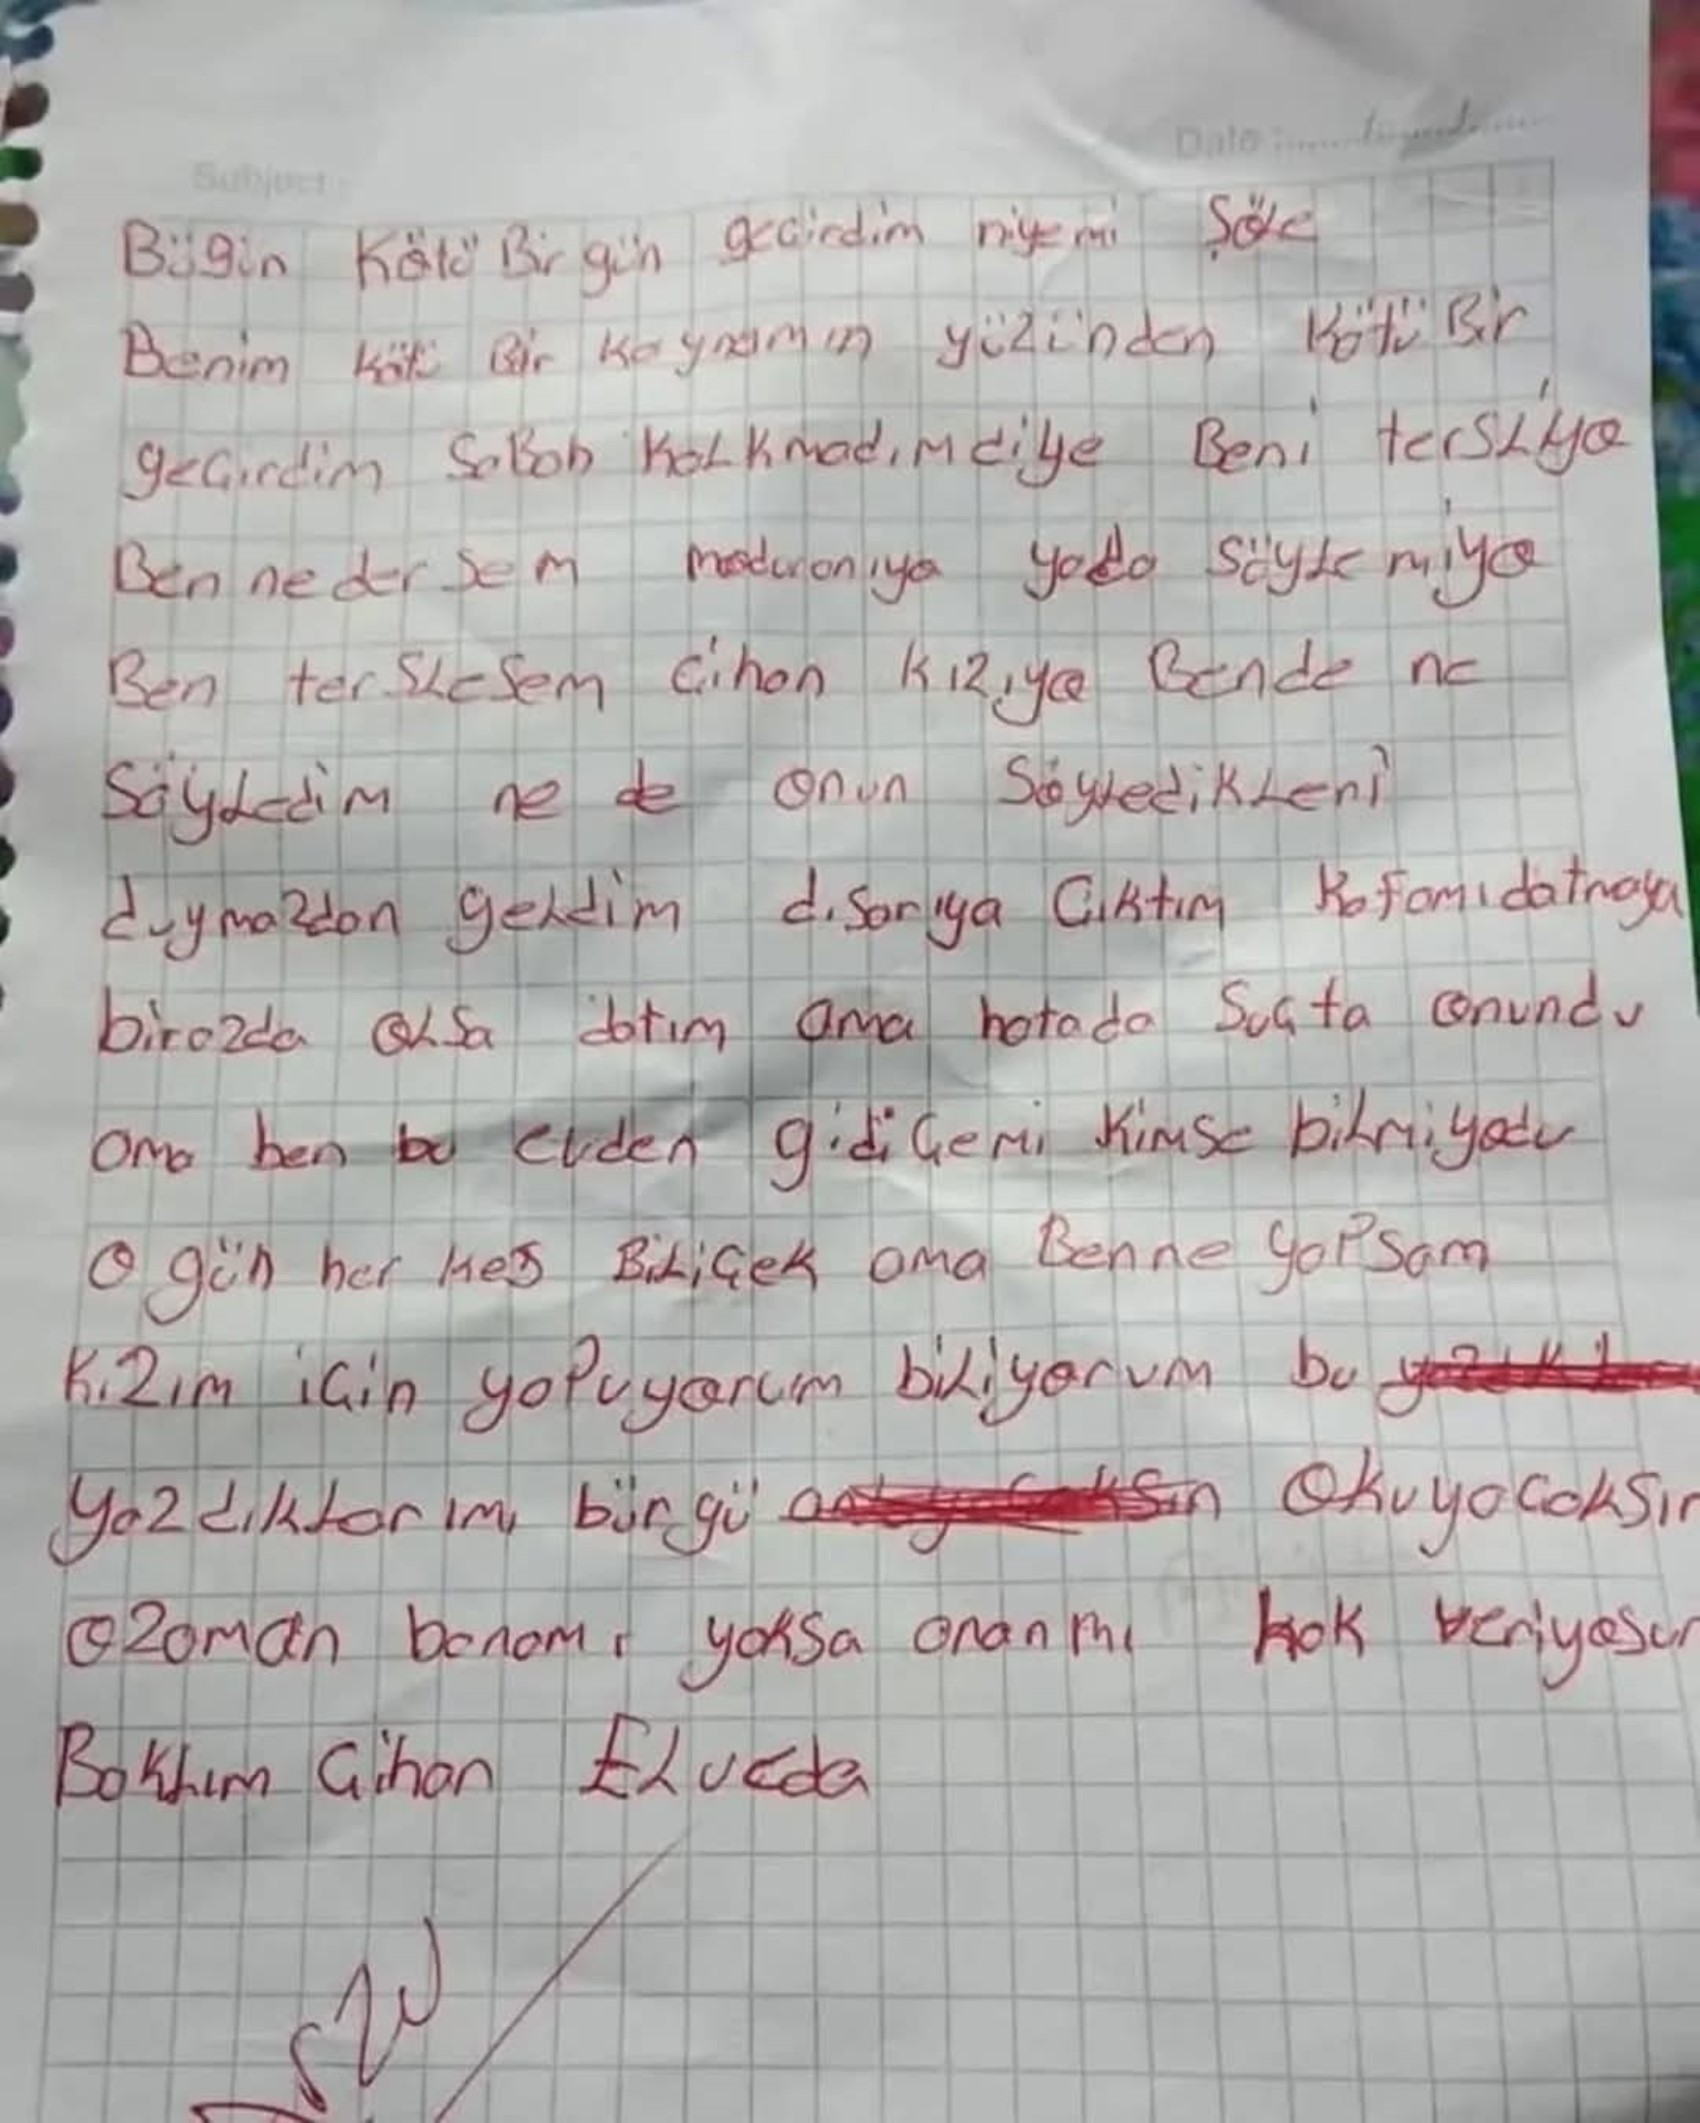 Subject:
Date:
Bügün Kötü Bir gün geçirdim niyemi Şöle
Benim kötü Bir kaynamın yüzünden Kötü Bir
geçirdim SaBah KaLkmadım diye Beni tersLiyo
Ben ne dersem madaranıya yada Söylemiyo
Ben tersLesem Cihan kızıyo Bende ne
SöyLedim ne de onun SöyledikLeni
duymazdan geLdim dışarıya Çıktım Kafamıdatmaya
birazda oLsa datım ama hatada Suçta onundu
ama ben bu evden gidiçemi kimse biLmiyodu
O gün her kes BiLiçek ama Benne yaPsam
Kızım için yaPuyorum biLiyorum bu
YazdıkLarımı bürgü Okuyacaksın
OZaman banamı yoksa onanmı hak veriyosun
BakLım Cihan ELveda